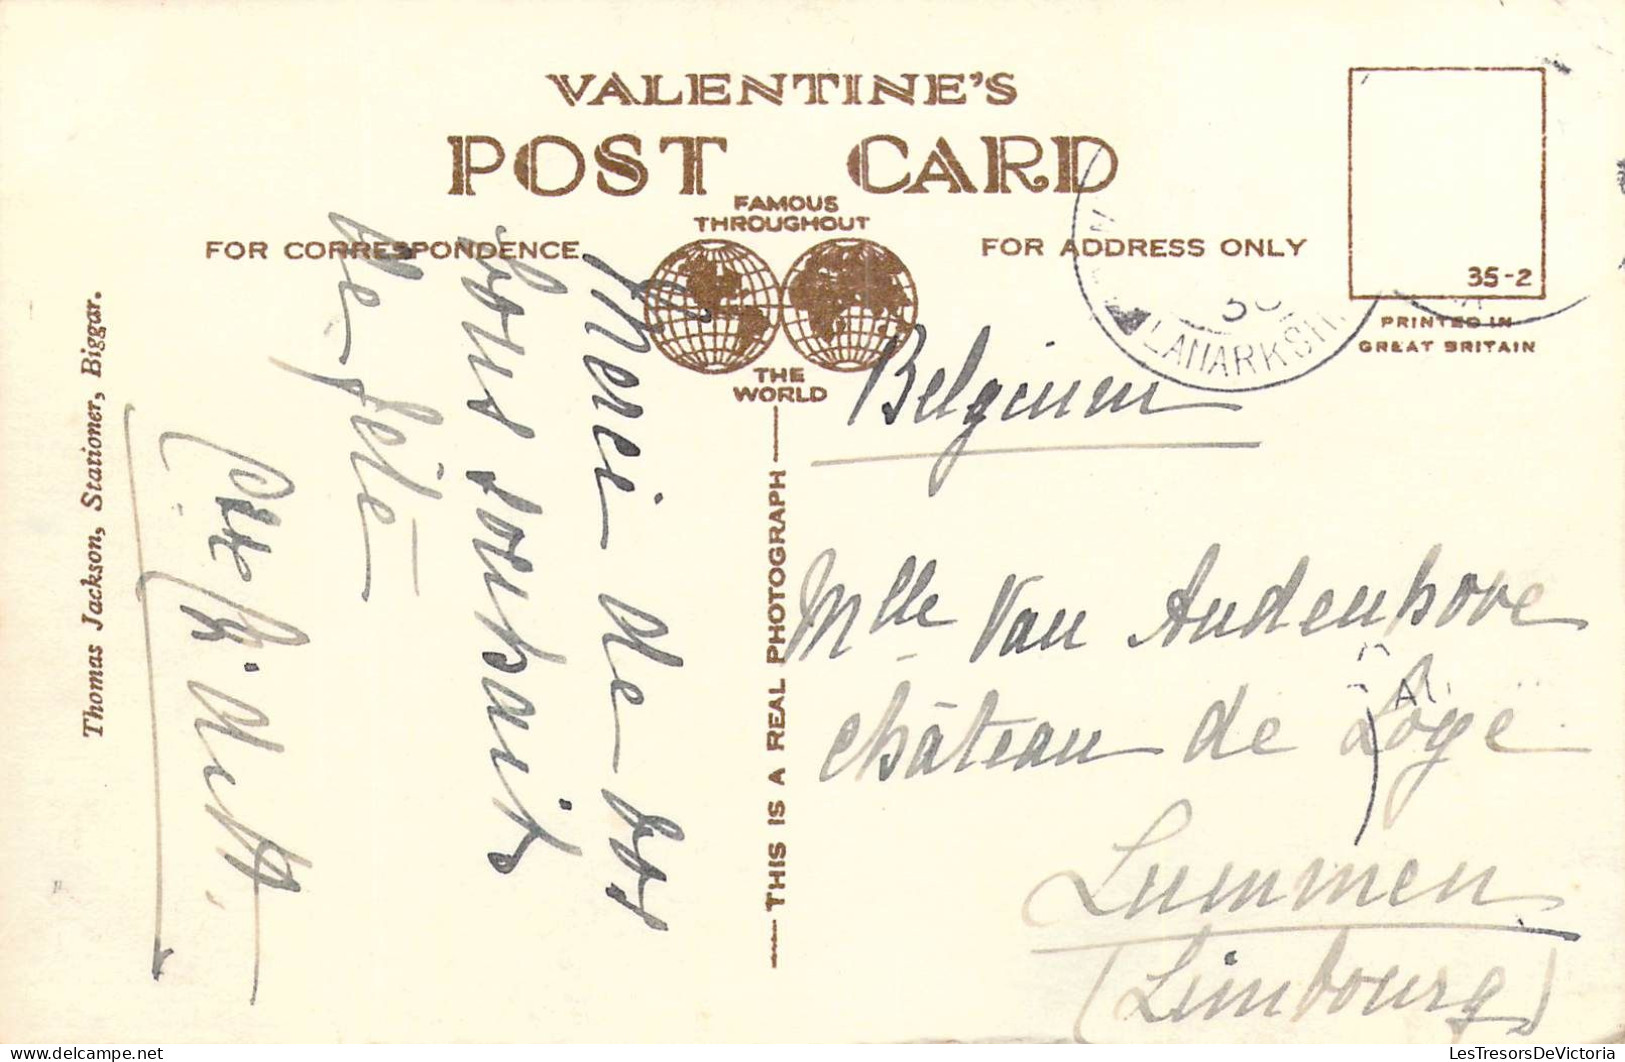 VALENTINE'S
POST CARD
FAMOUS
THROUGHOUT
THE
WORLD
FOR CORRESPONDENCE
FOR ADDRESS ONLY
35-2
PRINTED IN
GREAT BRITAIN
LANARKSH
THIS IS A REAL PHOTOGRAPH
Thomas Jackson, Stationer, Biggar.
Merci de vos
bons souhaits
de fête
Belgium
Mlle Van Audenhove
château de Loye
Lummen
(Limbourg)
LesTresorsDeVictoria